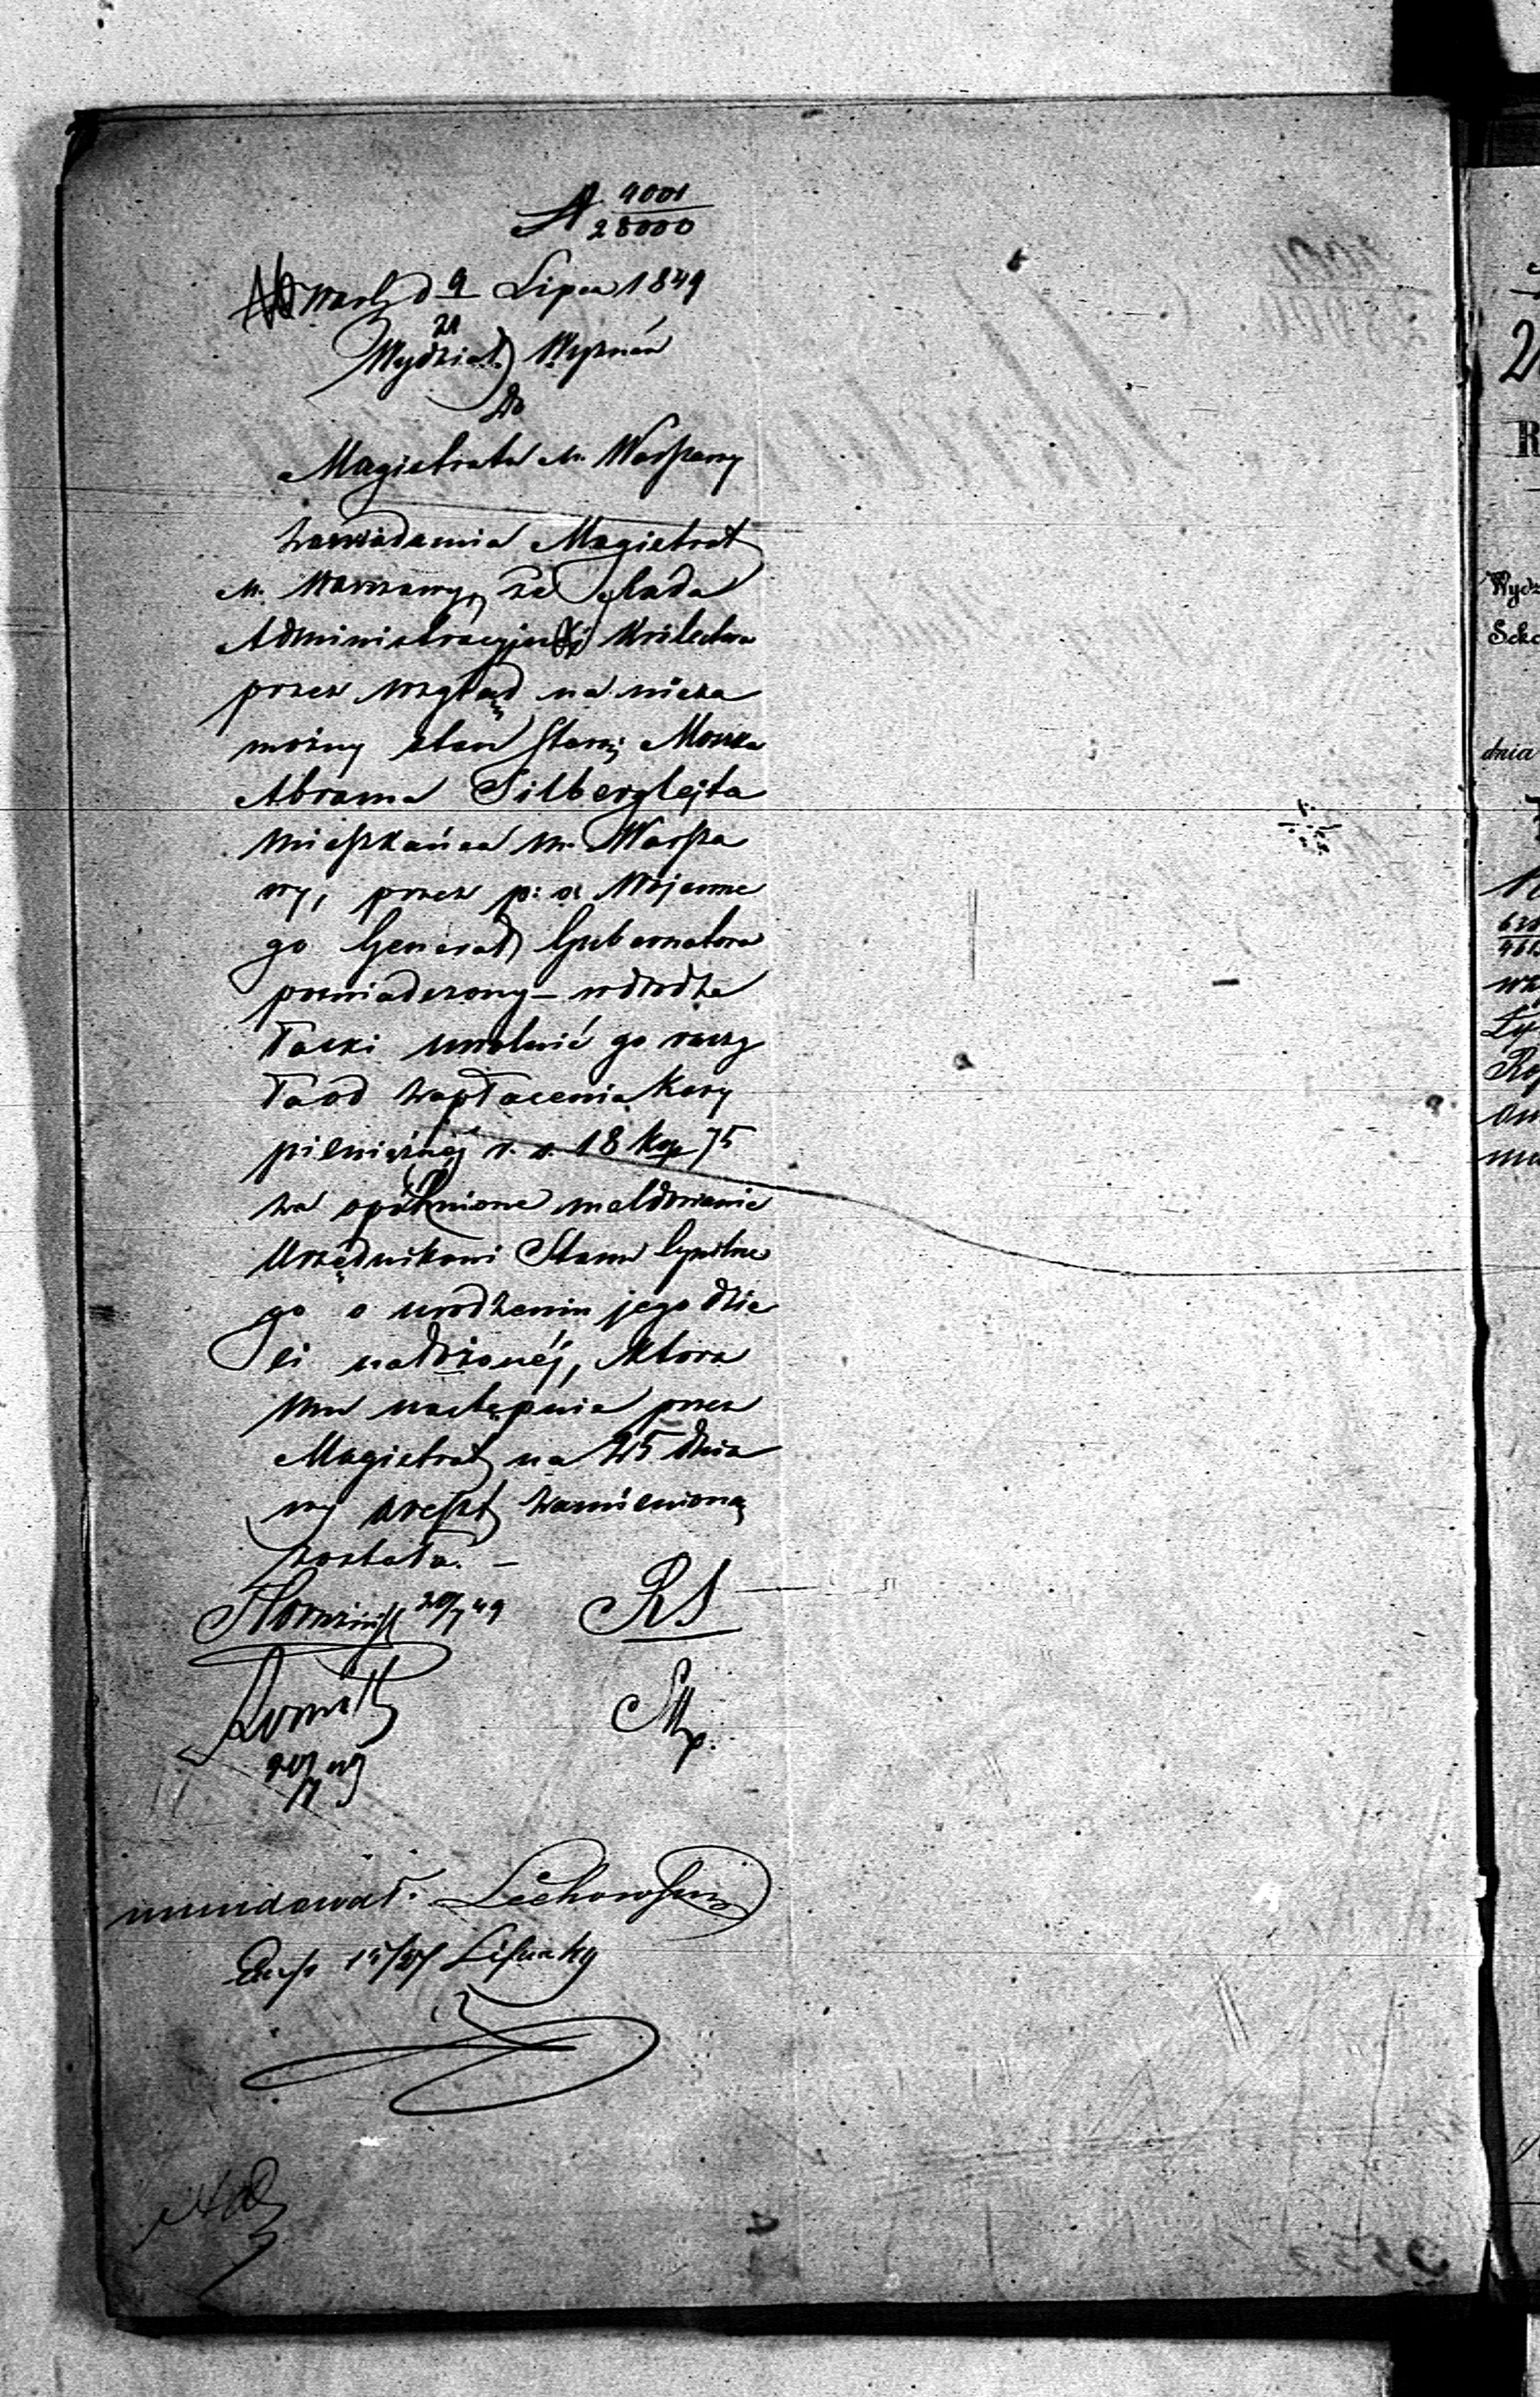 № 4001/28000
Warsz. d 9/21 Lipca 1849
Wydział Wyznań
Do
Magistratu m. Warszawy
Zawiadamia Magistrat
m. Warszawy, że Rada
Administracyjna Królestwa
przez wzgląd na nieza
możny stan Starz. Moszka
Abrama Silberglejta
mieszkańca m. Warsza
wy, przez p: o: Wojenne
go Generał Gubernatora
poświadczony – w drodze
łaski uwolnić go raczy
ła od zapłacenia kary
pieniężnéj r. s. 18 kop 75
za opóźnione meldowanie
Urzędnikowi Stanu Cywilne
go o urodzeniu jego dzie
ci nałożonéj, która
mu następnie przez
Magistrat na 25 dnio
wy areszt zamienioną
została. –
20/7 49
RS
20/7 49
mundował. Lechowski
A
2
R
Wydz
Sekc
dnia